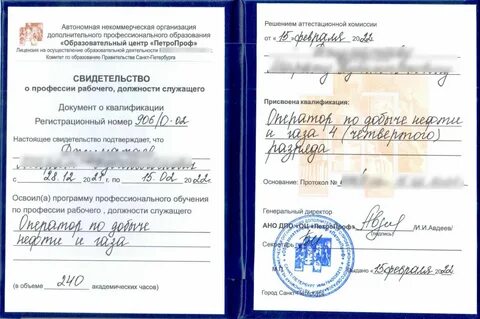 Автономная некоммерческая организация
дополнительного профессионального образования
«Образовательный центр «ПетроПроф»
Лицензия на осуществление образовательной деятельности
Комитет по образованию Правительства Санкт-Петербурга
СВИДЕТЕЛЬСТВО
о профессии рабочего, должности служащего
Документ о квалификации
Регистрационный номер 906/О-02
Настоящее свидетельство подтверждает, что
с 28.12 2021 г. по 15.02 2022 г.
Освоил(а) программу профессионального обучения
по профессии рабочего , должности служащего
Оператор по добыче
нефти и газа
(в объеме 240 академических часов)
Решением аттестационной комиссии
от «15» февраля 2022
Присвоена квалификация:
Оператор по добыче нефти
и газа 4 (четвертого)
разряда
Основание: Протокол №
Генеральный директор
АНО ДПО «ОЦ «ПетроПроф» /И.И.Авдеев/
подпись
Секретарь
Выдано «15» февраля 2022
Город Санкт-Петербург